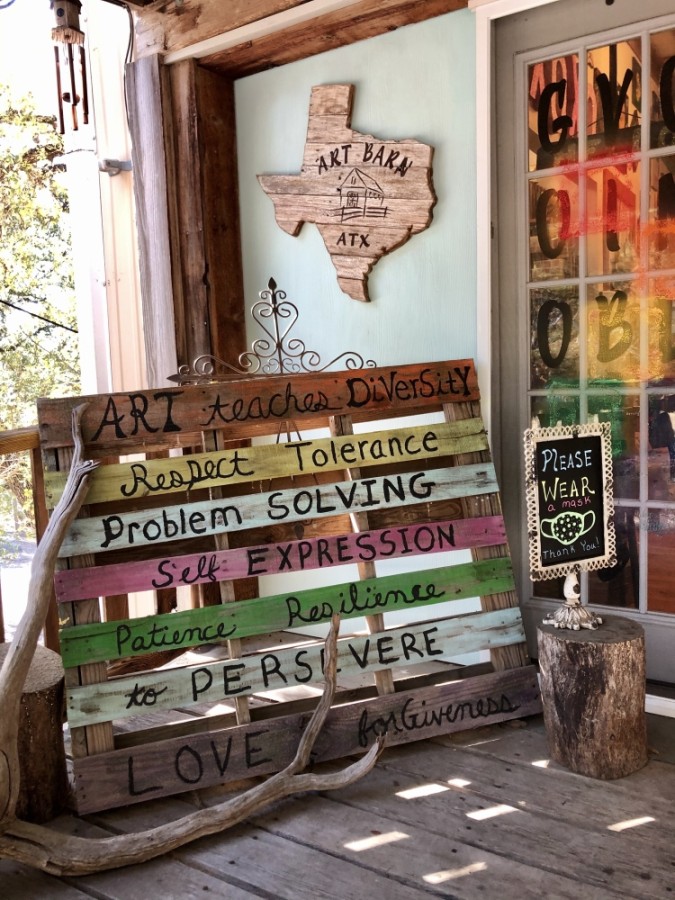 ART BARN
ATX
ART teaches DiVERSiTY
Respect Tolerance
Problem SOLVING
Self EXPRESSION
Patience Resilience
to PERSEVERE
LOVE forGiveness
PLEASE
WEAR
a mask
Thank You!